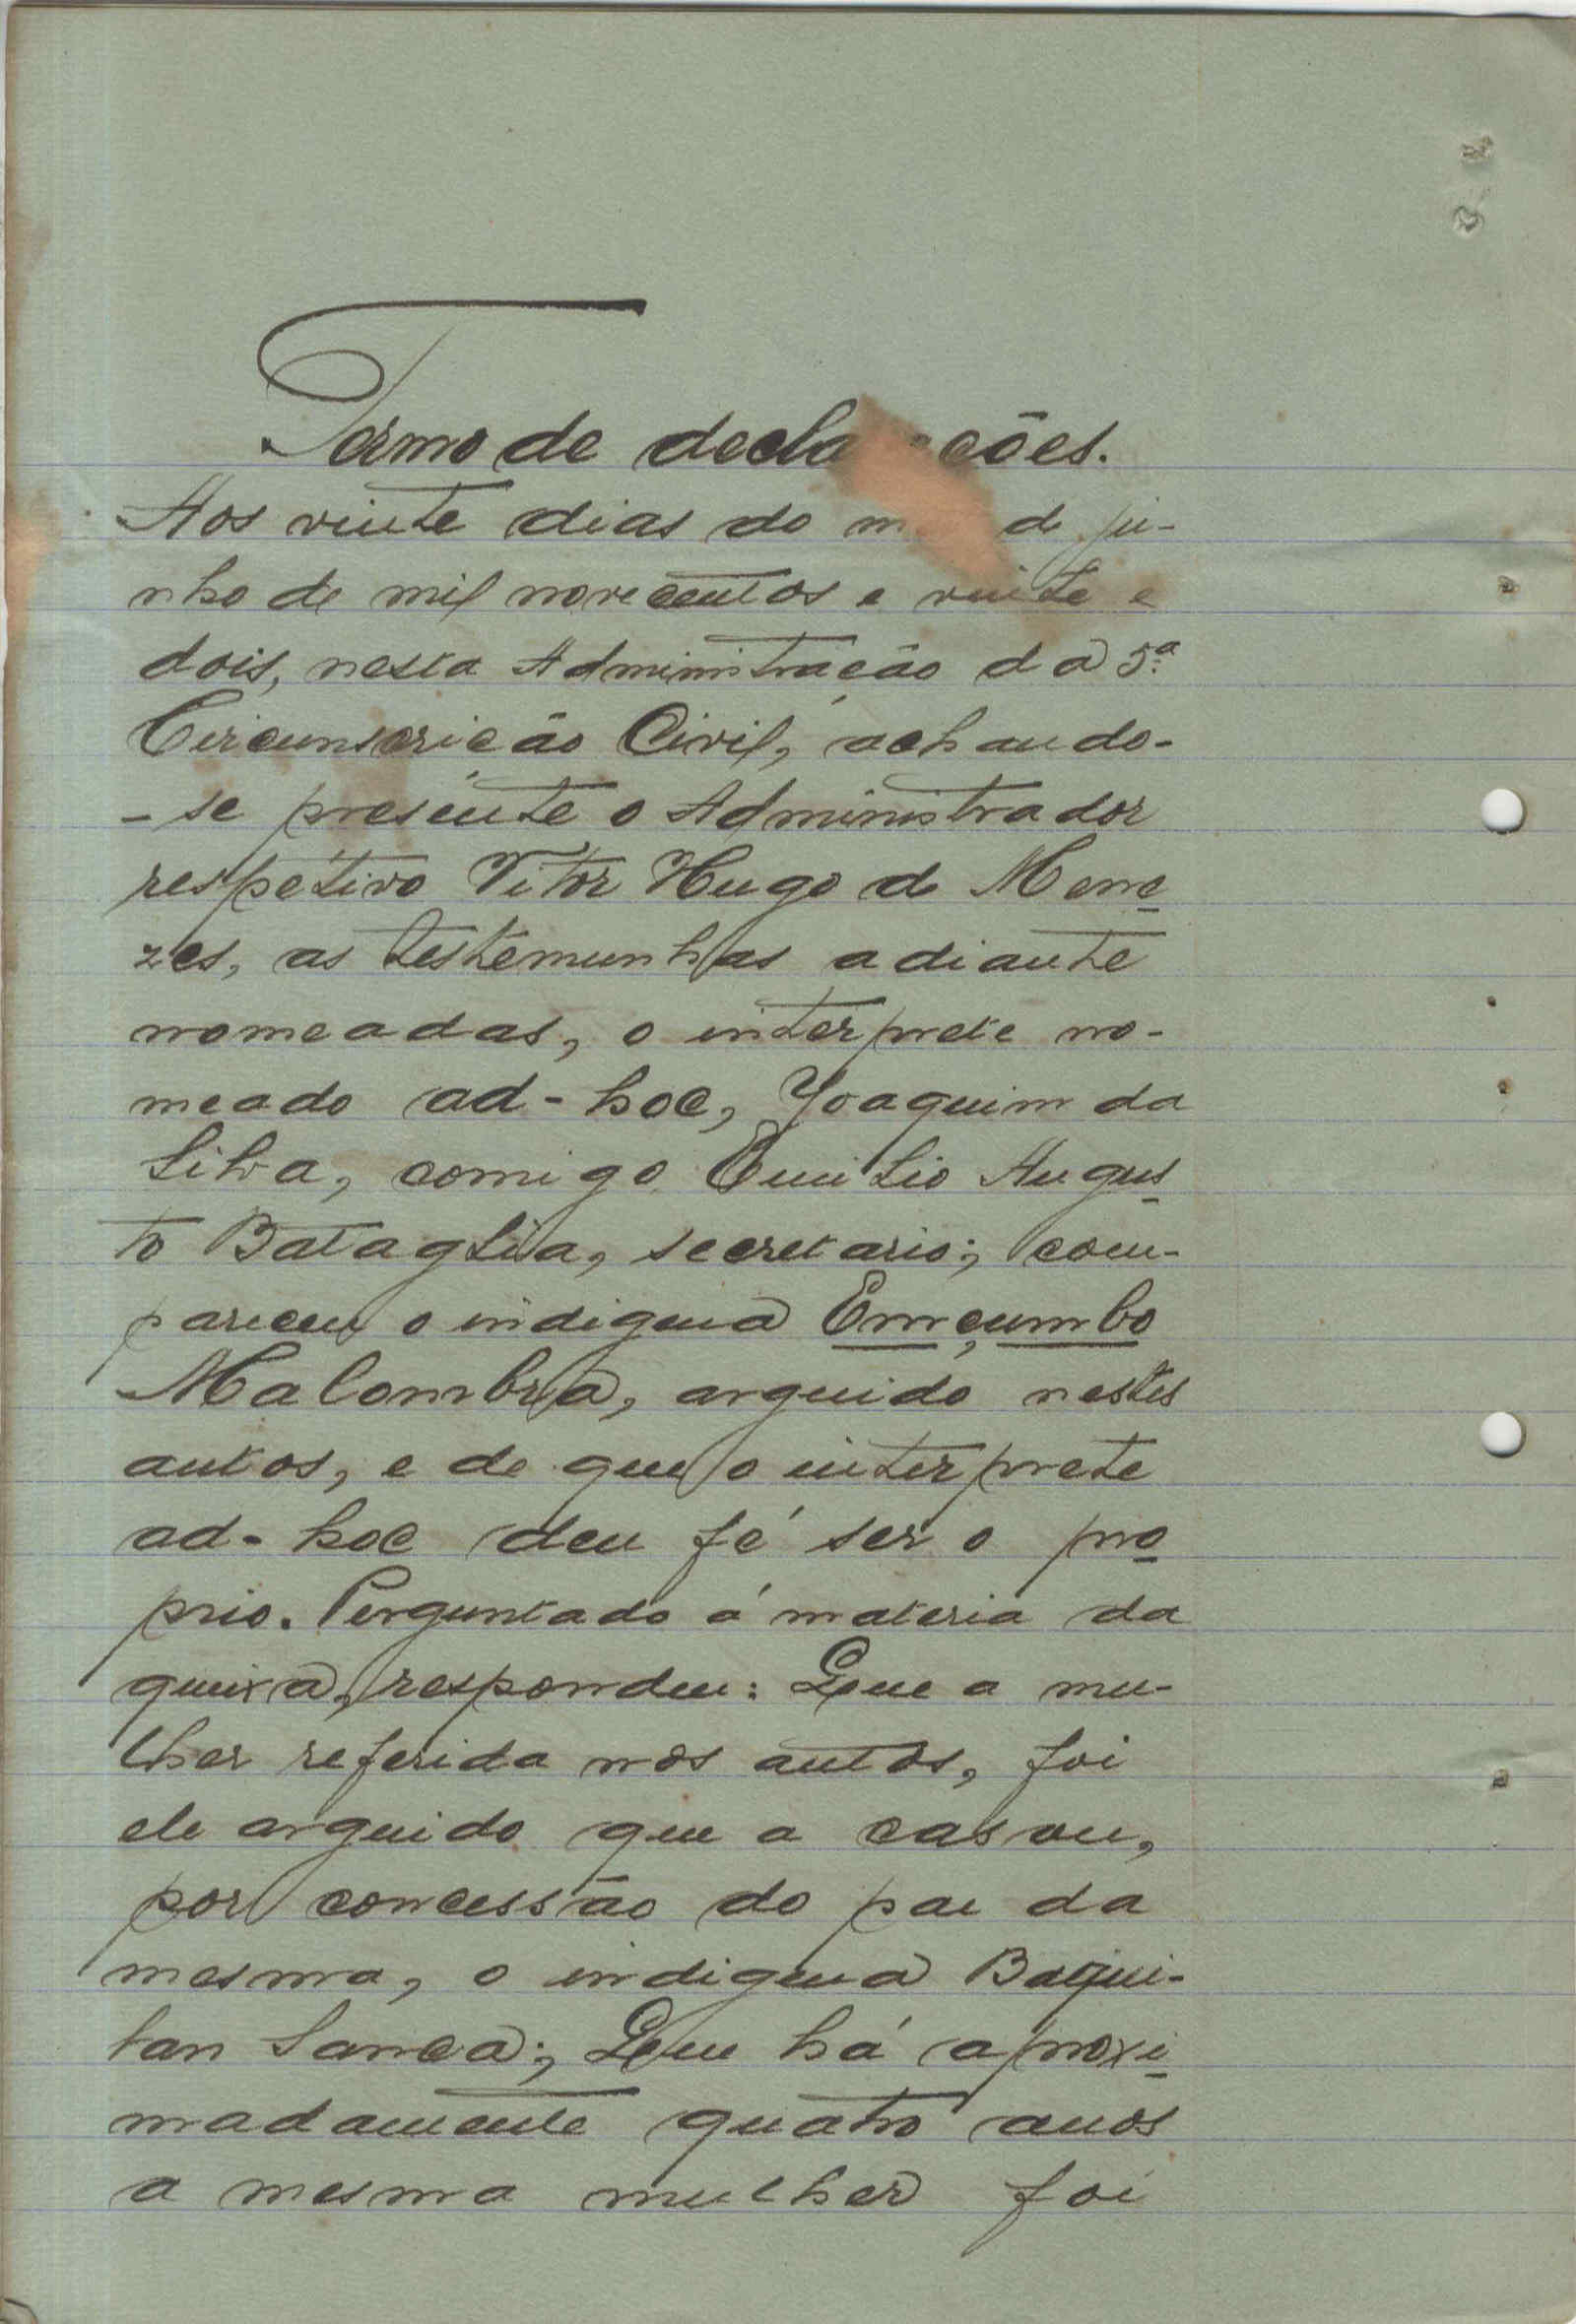 Termo de declarações.
Aos vinte dias do m de ju-
nho de mil novecentos e vinte e
dois, nesta Administração da 5.ª
Circunscrição Civil, achando-
-se presente o Administrador
respétivo Vitor Hugo de Mene
zes, as testemunhas adiante
nomeadas, o interprete no-
meado ad-hoc, Joaquim da
Silva, comigo Emilio Augus
to Bataglia, secretario; com-
pareceu o indigena Emçumbo
Malombra, arguido nestes
autos, e de que o interprete
ad-hoc deu fé ser o pro
prio. Perguntado á materia da
queixa, respondeu: Que a mu-
lher referida nos autos, foi
ele arguido que a casou,
por concessão do pae da
mesma, o indigena Baqui-
tan Sanca; Que há aproxi
madamente quatro anos
a mesma mulher foi